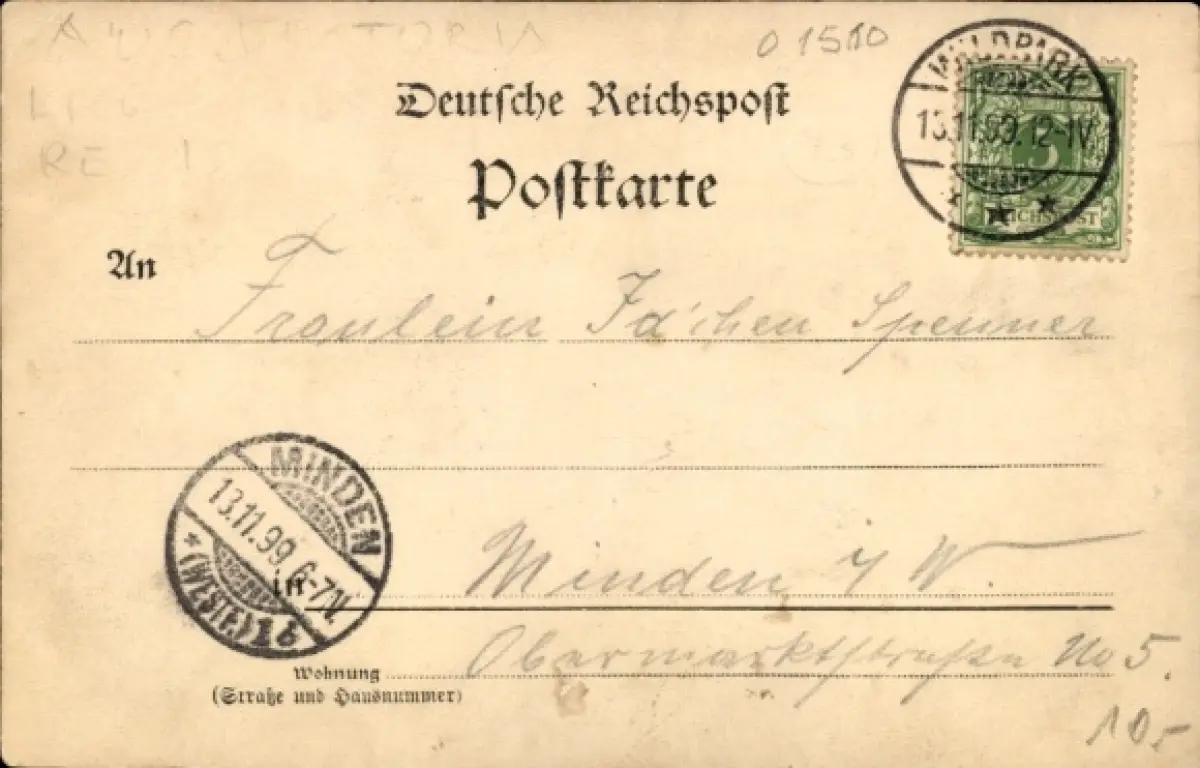 O 1510
Deutsche Reichspost
Postkarte
WALDPARK
13.11.99. 12-1V.
5
REICHSPOST
An
Fräulein Ida'chen Spenner
MINDEN
13.11.99. 6-7N.
* (WESTF.) 1 b
in
Minden i/W
Wohnung
(Straße und Hausnummer)
Obermarktstraße No 5.
10,-